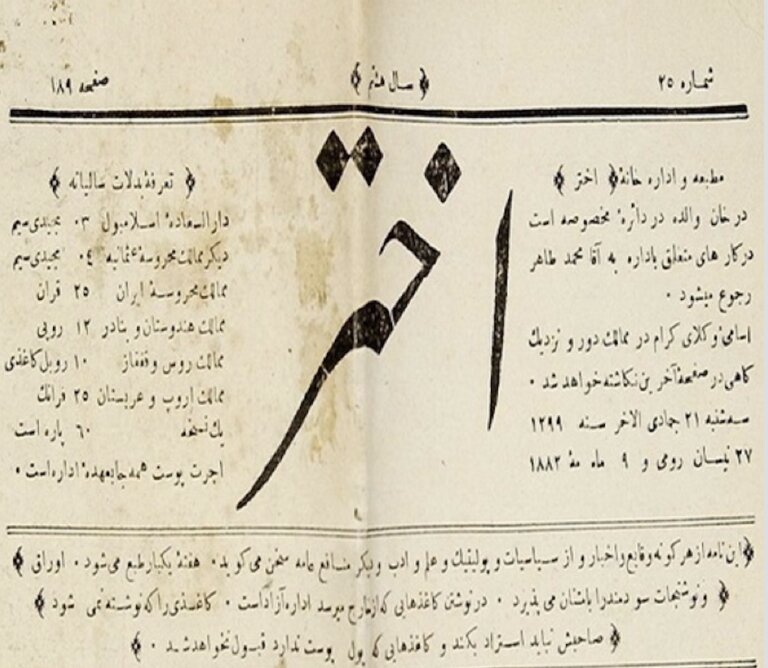 شماره ۲۵
﴿ سال هشتم ﴾
صفحه ۱۸۹
مطبعه و اداره خانهٔ ﴿ اختر ﴾
در خان والده در دائرهٔ مخصوصه است
در کار های متعلق باداره به آقا محمد طاهر
رجوع میشود ۰
اسامیٔ وکلای کرام در ممالك دور و نزدیك
کاهی در صفحهٔ آخرین نکاشته خواهد شد ۰
سه شنبه ۲۱ جمادی الاخر سنه ۱۲۹۹
۲۷ نیسان رومی و ۹ ماه مهٔ ۱۸۸۲
اختر
﴿ تعرفهٔ بدلات سالیانه ﴾
دار السعادهٔ اسلامبول ۰۳ مجیدی سیم
دیکر ممالك محروسهٔ عثمانیه ۰٤ مجیدی سیم
ممالك محروسهٔ ایران ۲۵ قران
ممالك هندوستان و بنادر ۱۲ روپی
ممالك روس و قفقاز ۱۰ روبل کاغذی
ممالك اروپ و عربستان ۲۵ فرانك
یك نسخه ٦۰ پاره است
اجرت پوست همه جا بعهدهٔ اداره است ۰
﴿ این نامه از هر کونه وقایع و اخبار و از سیاسیات و پولیتیك و علم و ادب و دیکر منافع عامه سخن می کوید ۰ هفتهٔ یکبار طبع می شود ۰ اوراق ﴾
﴿ و نوشتجات سودمند را بامتنان می پذیرد ۰ در نوشتن کاغذهایی که از خارج میرسد اداره آزاد است ۰ کاغذی را که نوشته نمی شود ﴾
﴿ صاحبش نباید استرداد بکند و کاغذهایی که پول پوست ندارد قبول نخواهد شد ۰ ﴾